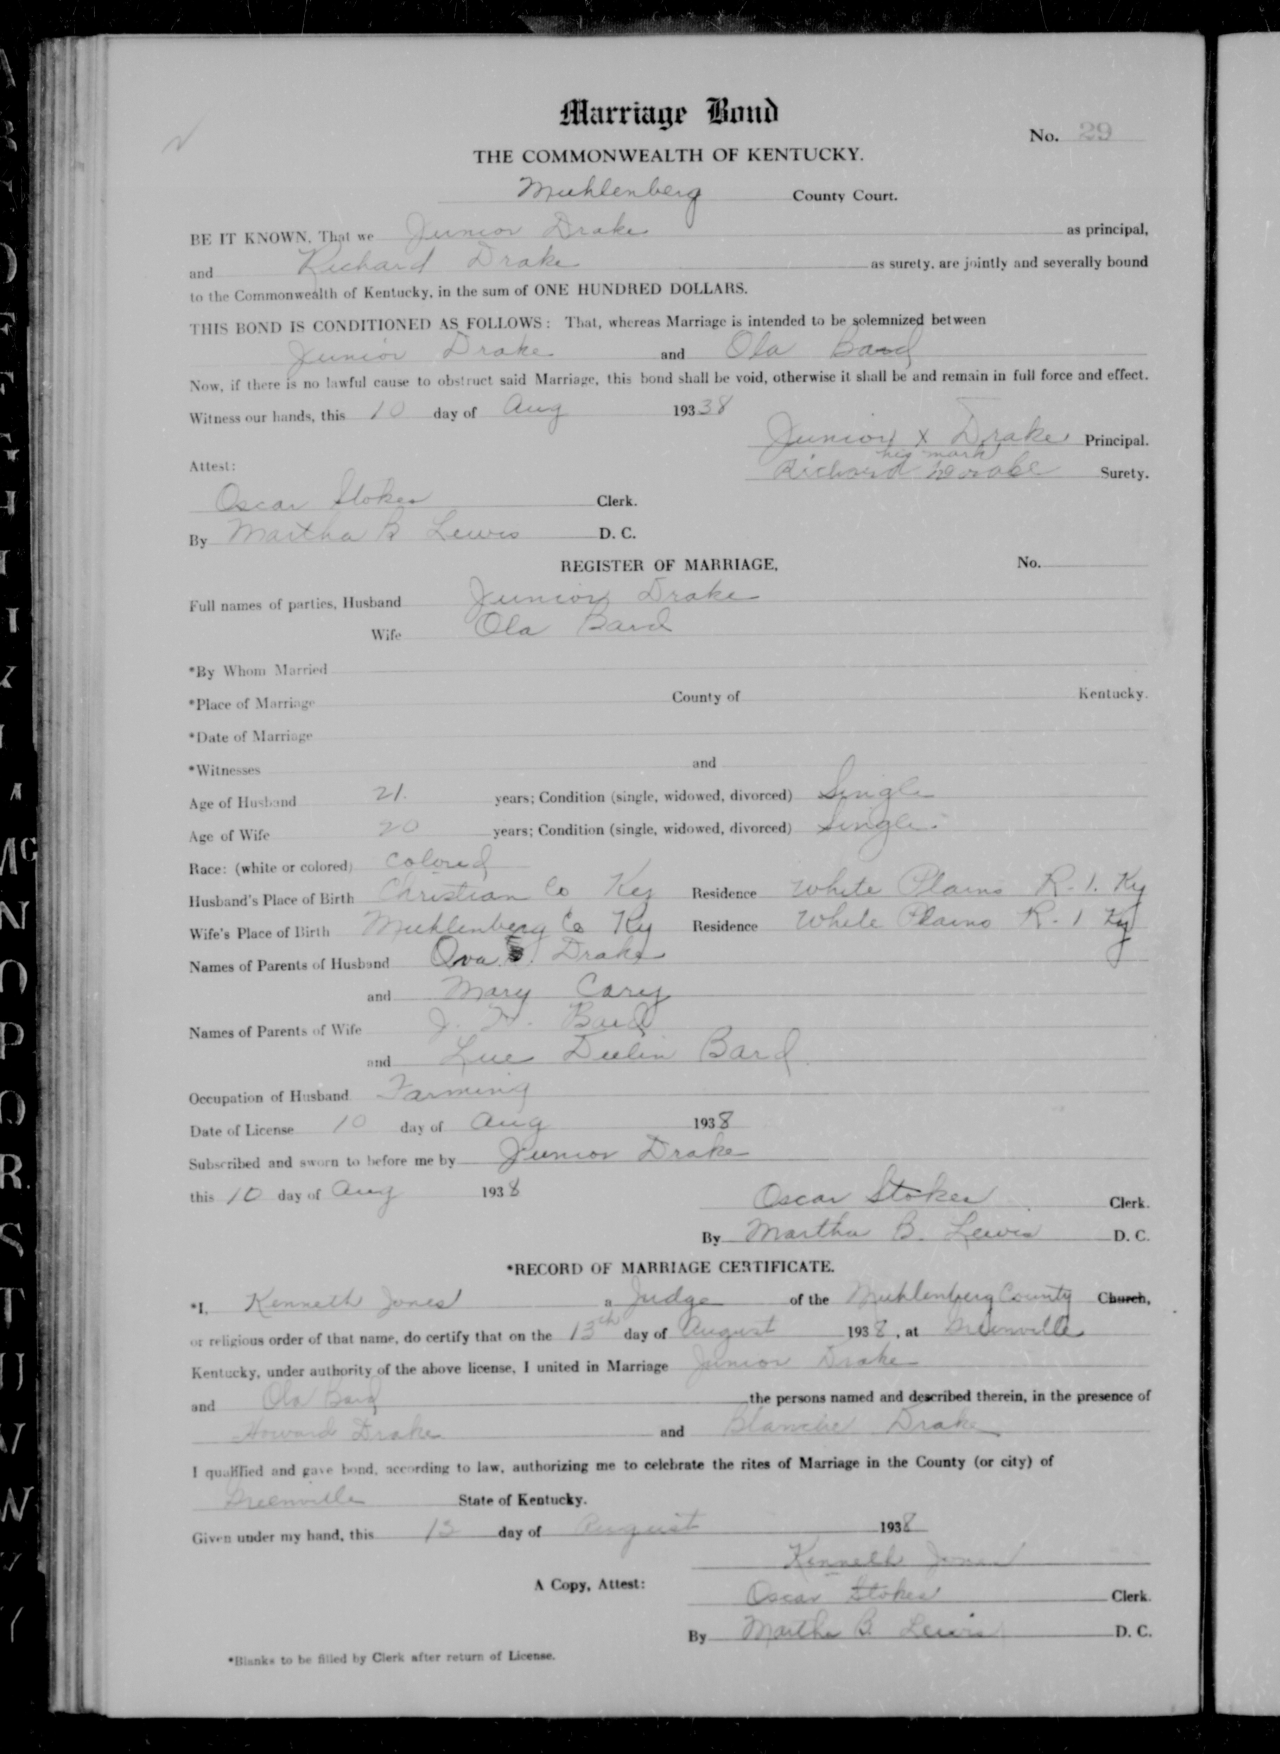 Marriage Bond
No. 29
THE COMMONWEALTH OF KENTUCKY.
Muhlenberg County Court.
BE IT KNOWN, That we Junior Drake as principal,
and Richard Drake as surety, are jointly and severally bound
to the Commonwealth of Kentucky, in the sum of ONE HUNDRED DOLLARS.
THIS BOND IS CONDITIONED AS FOLLOWS: That, whereas Marriage is intended to be solemnized between
Junior Drake and Ola Bard
Now, if there is no lawful cause to obstruct said Marriage, this bond shall be void, otherwise it shall be and remain in full force and effect.
Witness our hands, this 10 day of Aug 19338
Junior x Drake Principal.
his mark
Attest: Richard Drake Surety.
Oscar Stokes Clerk.
By Martha B Lewis D. C.
REGISTER OF MARRIAGE, No.
Full names of parties, Husband Junior Drake
Wife Ola Bard
*By Whom Married
*Place of Marriage County of Kentucky.
*Date of Marriage
*Witnesses and
Age of Husband 21. years; Condition (single, widowed, divorced) Single
Age of Wife 20 years; Condition (single, widowed, divorced) Single.
Race: (white or colored) Colored
Husband's Place of Birth Christian Co Ky Residence White Plains R. 1. Ky
Wife's Place of Birth Muhlenberg Co Ky Residence White Plains R. 1 Ky
Names of Parents of Husband Ova Drake
and Mary Cary
Names of Parents of Wife J. Bard
and Lue Bard
Occupation of Husband Farming
Date of License 10 day of Aug 1938
Subscribed and sworn to before me by Junior Drake
this 10 day of Aug 1938
Oscar Stokes Clerk.
By Martha B. Lewis D. C.
*RECORD OF MARRIAGE CERTIFICATE.
*I, Kenneth Jones a Judge of the Muhlenberg County Church,
or religious order of that name, do certify that on the 13th day of August 1938, at Greenville
Kentucky, under authority of the above license, I united in Marriage Junior Drake
and Ola Bard the persons named and described therein, in the presence of
Howard Drake and Blanche Drake
I qualified and gave bond, according to law, authorizing me to celebrate the rites of Marriage in the County (or city) of
Greenville State of Kentucky.
Given under my hand, this 13 day of August 1938
Kenneth Jones
A Copy, Attest: Oscar Stokes Clerk.
By Martha B. Lewis D. C.
*Blanks to be filled by Clerk after return of License.